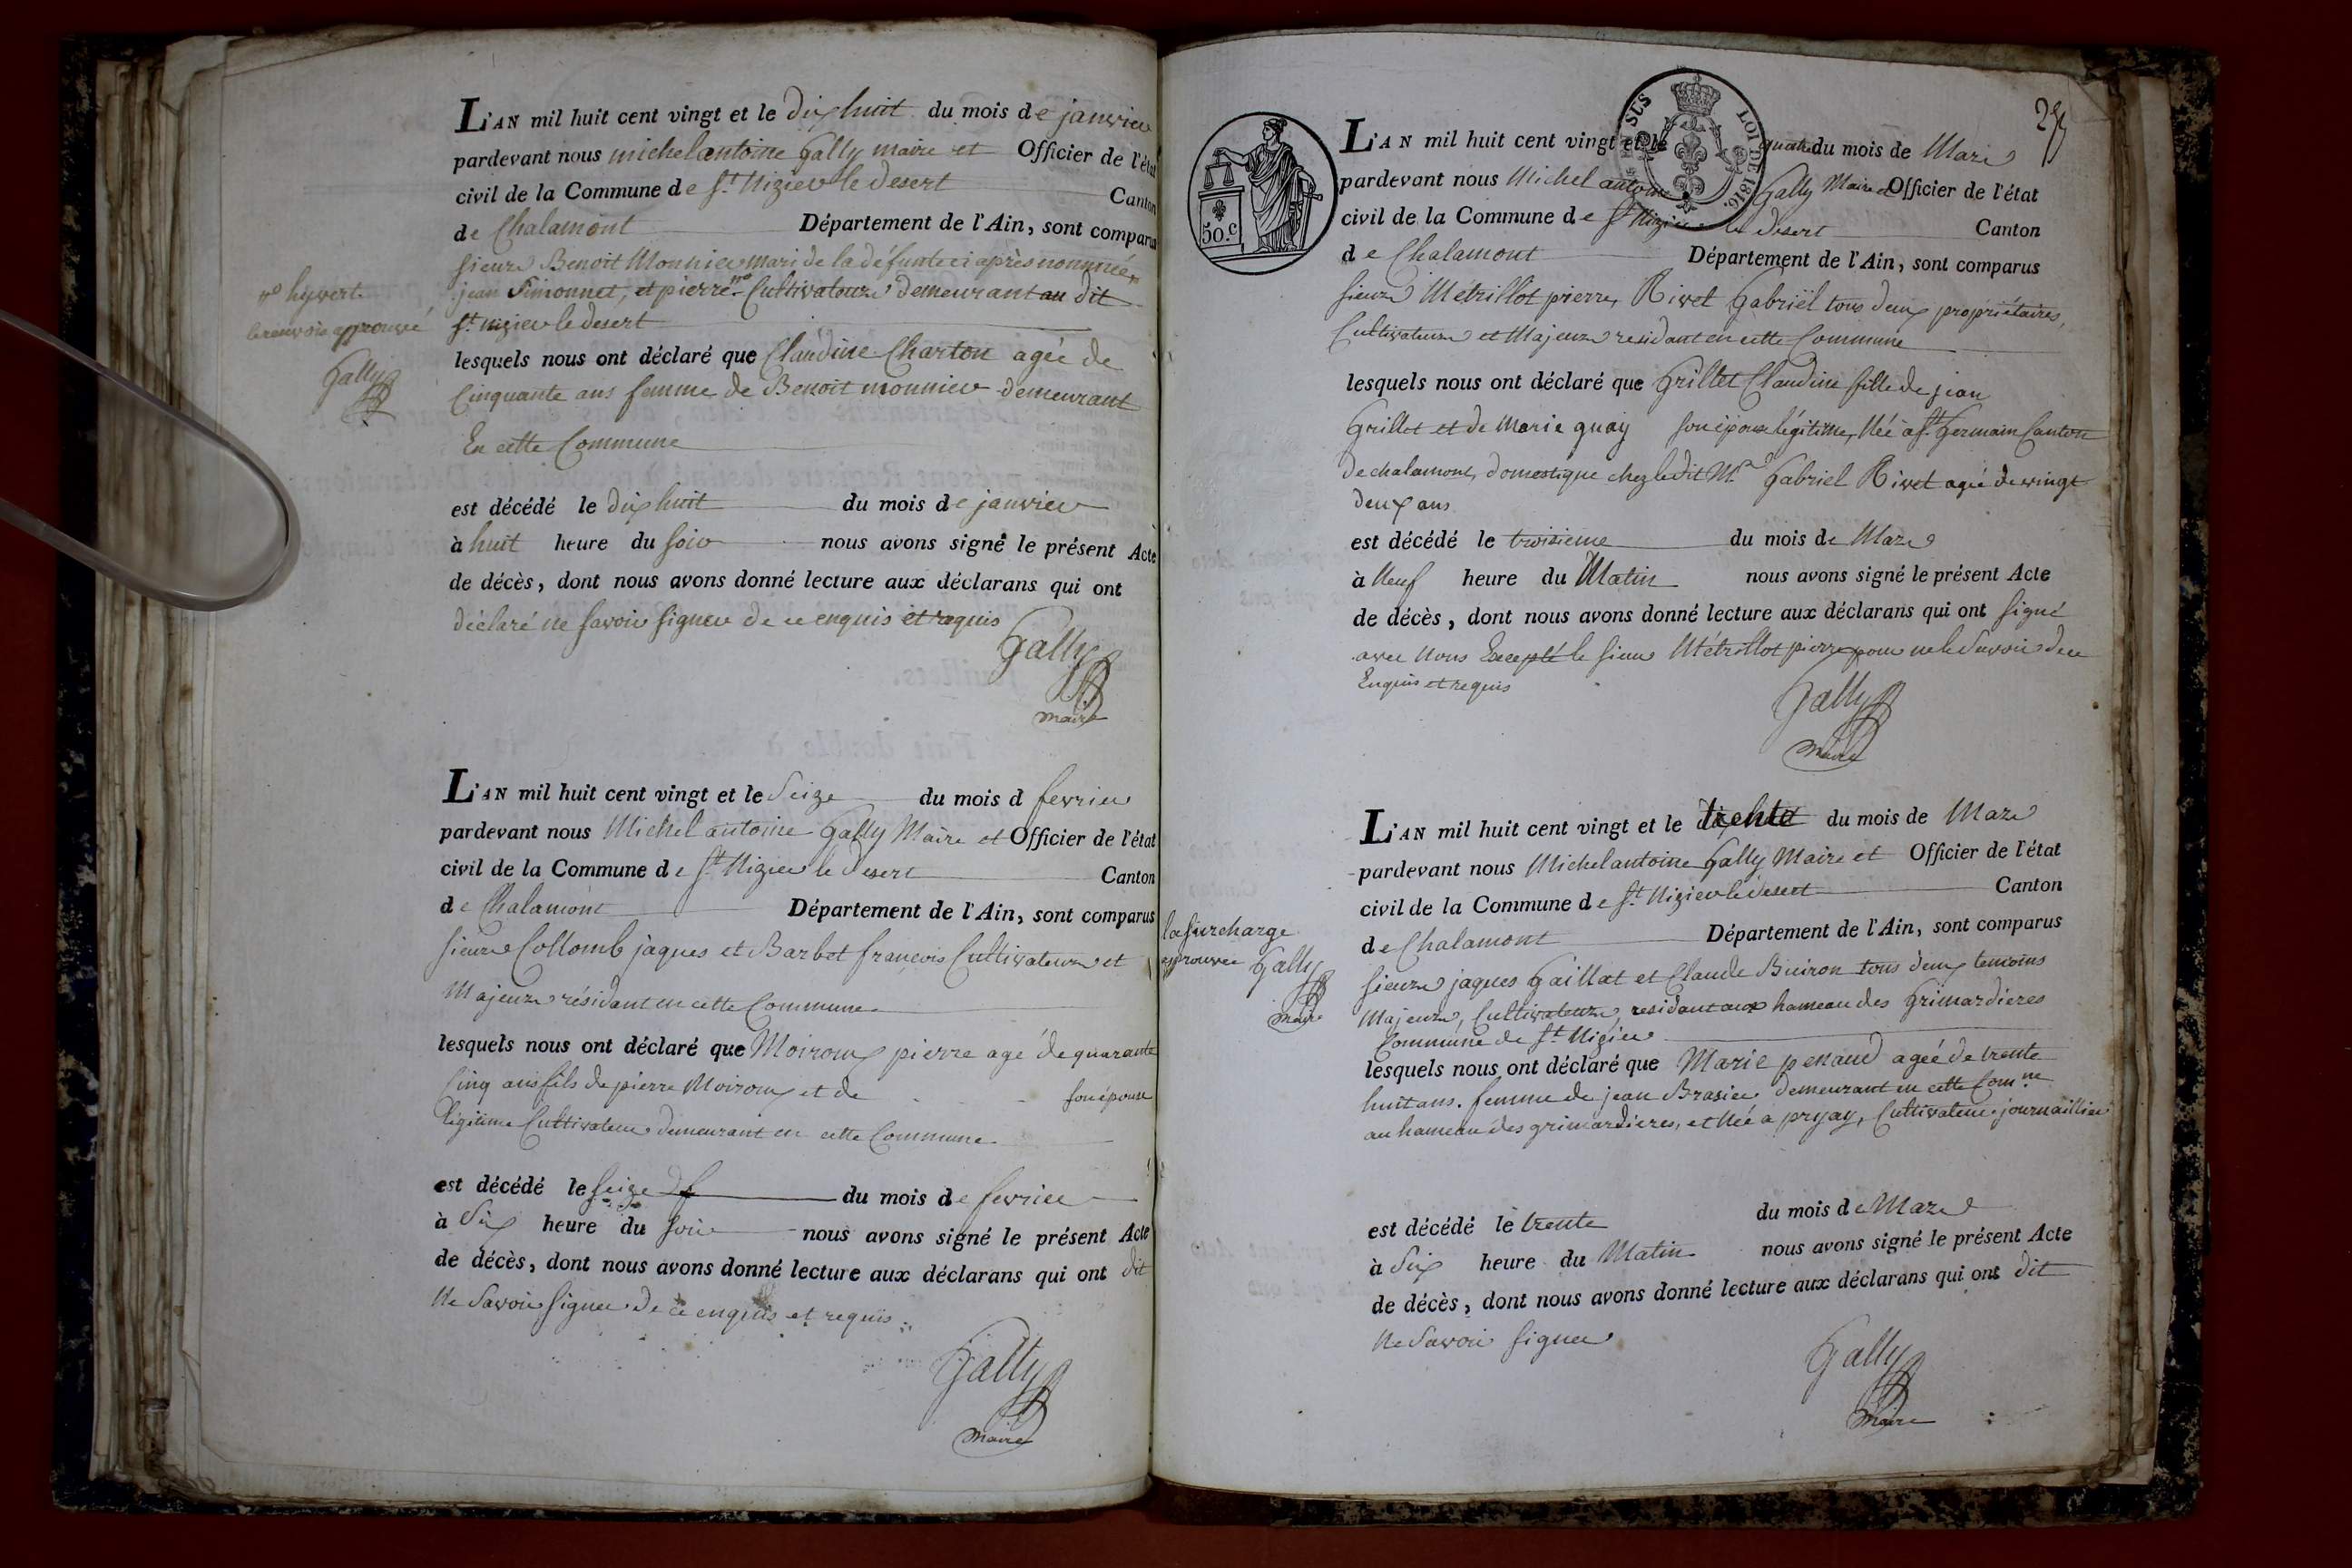 L'AN mil huit cent vingt et le dix huit du mois de janvier
pardevant nous michel antoine Gally maire et Officier de l'état
civil de la Commune de St. Nizier le desert Canton
de Chalamont Département de l'Ain, sont comparus
sieurs Benoit Monnier mari de la défunte ci après nommée,
jean Simonnet, et pierre no. Cultivateurs demeurant au dit
St. nizier le desert
no. hyvert.
le renvoie approuvé
Gally
lesquels nous ont déclaré que Claudine Charton agée de
Cinquante ans femme de Benoit monnier demeurant
En cette Commune
est décédé le dix huit du mois de janvier
à huit heure du soir nous avons signé le présent Acte
de décès, dont nous avons donné lecture aux déclarans qui ont
déclaré ne savoir signer de ce enquis et requis
Gally
maire
L'AN mil huit cent vingt et le Seize du mois d fevrier
pardevant nous Michel antoine Gally Maire et Officier de l'état
civil de la Commune de St. Nizier le desert Canton
de Chalamont Département de l'Ain, sont comparus
sieurs Collomb jaques et Barbet françois Cultivateurs et
Majeurs résidant en cette Commune
lesquels nous ont déclaré que Moiroux pierre agé de quarante
Cinq ans fils de pierre Moiroux et de son épouse
légitime Cultivateur demeurant en cette Commune
est décédé le seize du mois de fevrier
à Six heure du soir nous avons signé le présent Acte
de décès, dont nous avons donné lecture aux déclarans qui ont dit
Ne Savoir signer de ce enquis et requis
Gally
maire
29
50.c
SUS LOI DE 1816.
L'AN mil huit cent vingt et le quatre du mois de Mars
pardevant nous Michel antoine Gally Maire et Officier de l'état
civil de la Commune de St. Nizier le desert Canton
de Chalamont Département de l'Ain, sont comparus
sieurs Metrillot pierre, Rivet Gabriël tous deux propriétaires,
Cultivateurs et Majeurs residant en cette Commune
lesquels nous ont déclaré que Grillet Claudine fille de jean
Grillet et de Marie guay son épouse légitime, Née à St. Germain Canton
de chalamont, domestique chez ledit Mr. Gabriel Rivet agée de vingt
deux ans
est décédé le troisieme du mois de Mars
à Neuf heure du Matin nous avons signé le présent Acte
de décès, dont nous avons donné lecture aux déclarans qui ont signé
avec Nous Excepté le sieur Métrillot pierre pour ne le Savoir de ce
Enquis et requis
Gally
maire
L'AN mil huit cent vingt et le trente du mois de Mars
pardevant nous Michel antoine Gally Maire et Officier de l'état
civil de la Commune de St. Nizier le desert Canton
de Chalamont Département de l'Ain, sont comparus
la surcharge
approuvée Gally
maire
sieurs jaques Gaillat et Claude Buiron tous deux temoins
Majeurs, Cultivateurs, residant aux hameau des Grimardieres
Commune de St. Nizier
lesquels nous ont déclaré que Marie penaud agée de trente
huit ans. femme de jean Brasier demeurant en cette Comne
au hameau des grimardieres, et Née à pryay, Cultivateur journaillier
est décédé le trente du mois de Mars
à Six heure du Matin nous avons signé le présent Acte
de décès, dont nous avons donné lecture aux déclarans qui ont dit
Ne Savoir signer
Gally
maire